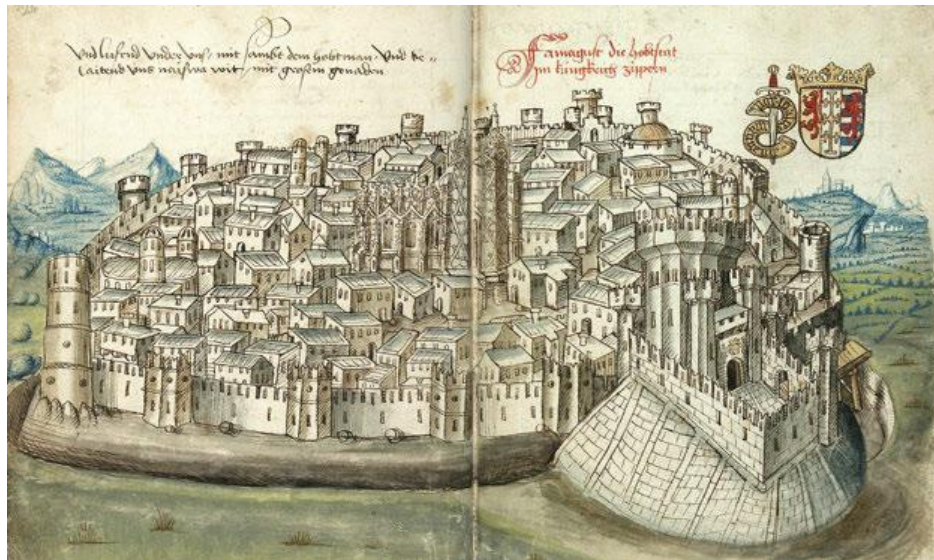 Vnd lusend Vnder Vns mit sambt dem hobtman Vnd be=
laitend Vns wit mit grossm genaden
Famagust die hobtstat
Im kungkreich zippern